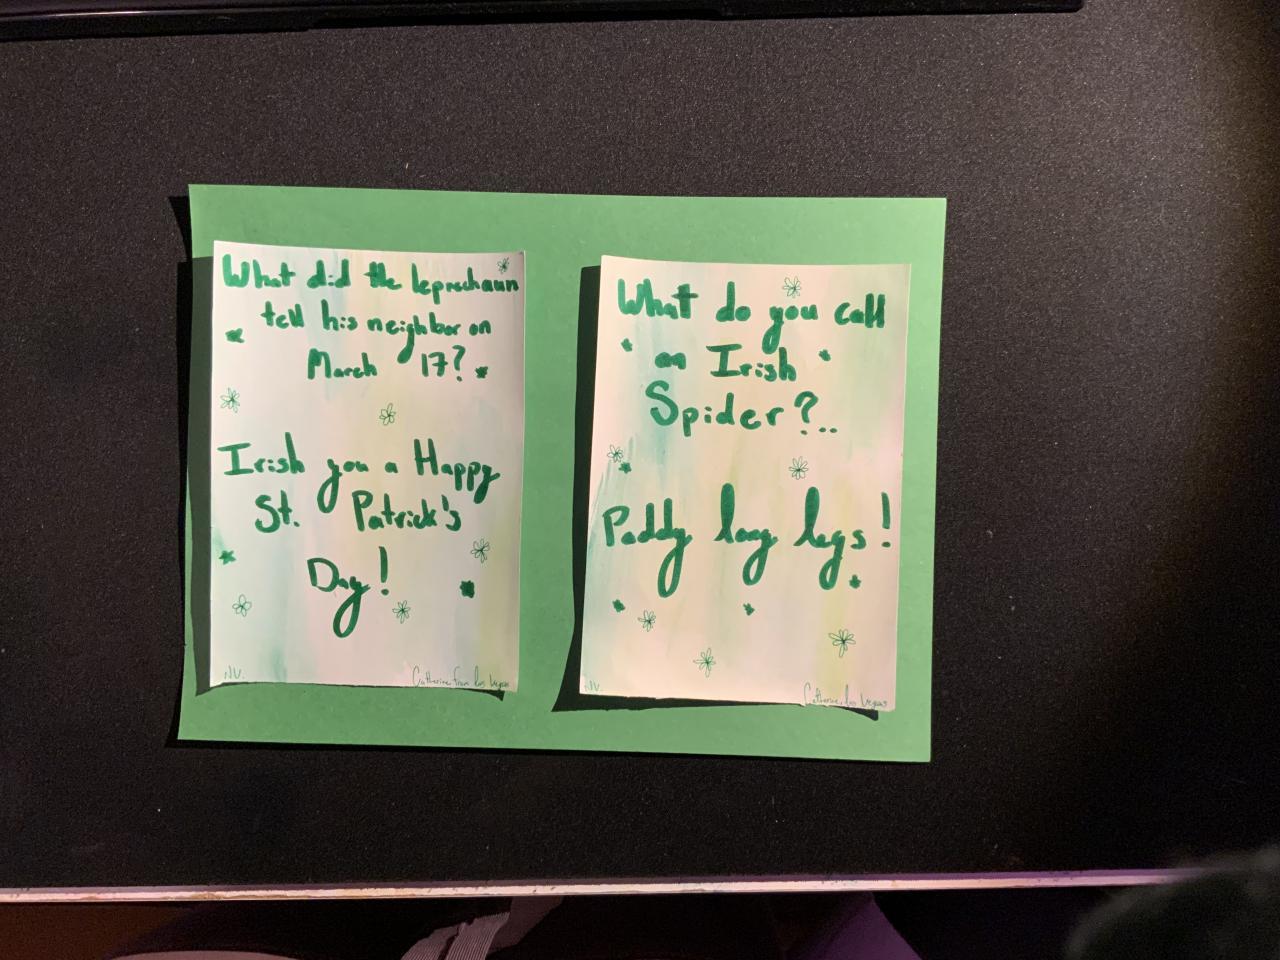 What did the leprechaun
tell his neighbor on
March 17?
Irish you a Happy
St. Patrick's
Day!
NV.
Catherine from Las Vegas
What do you call
an Irish
Spider?..
Paddy long legs!
NV.
Catherine, Las Vegas